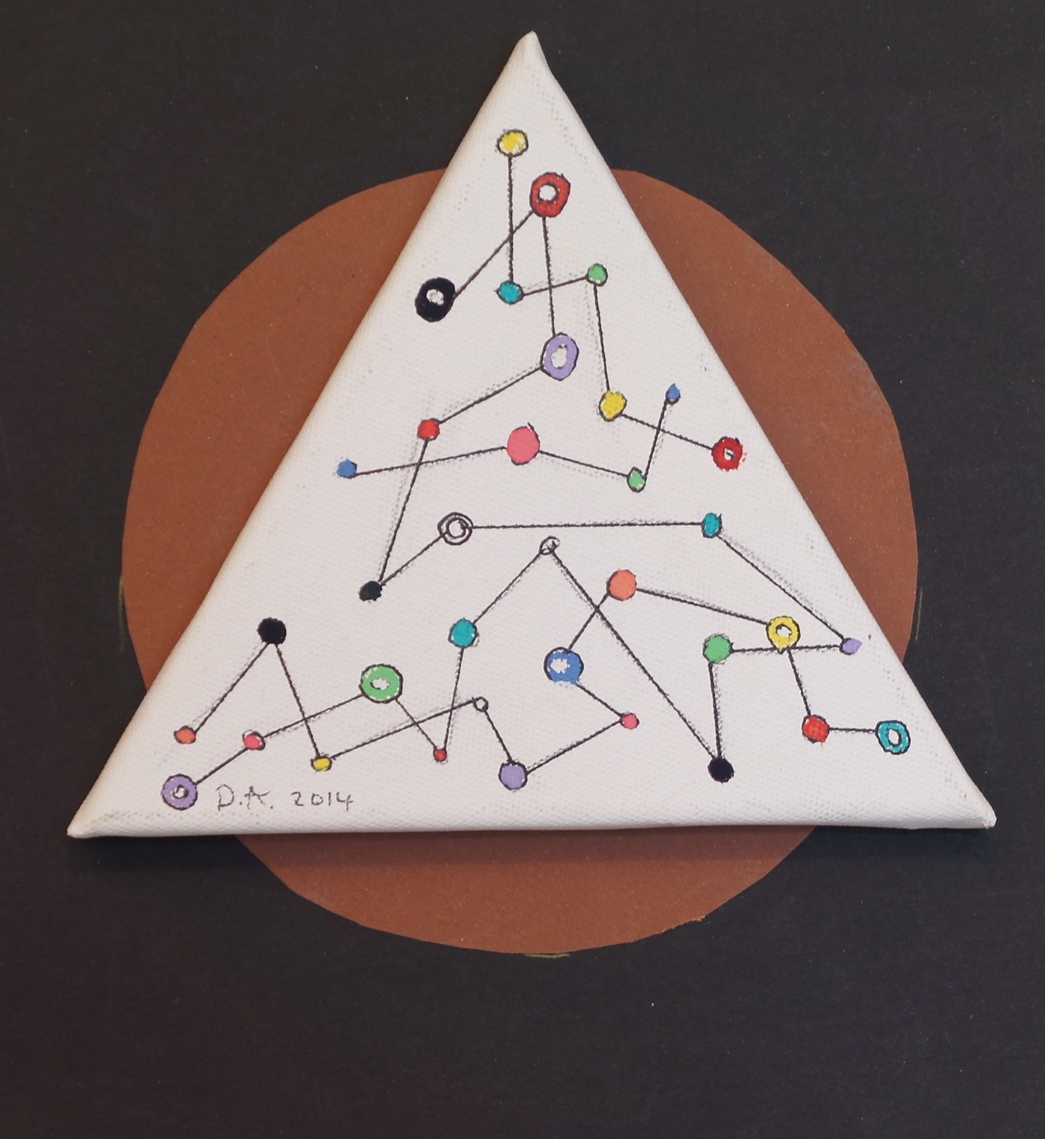 D.A. 2014